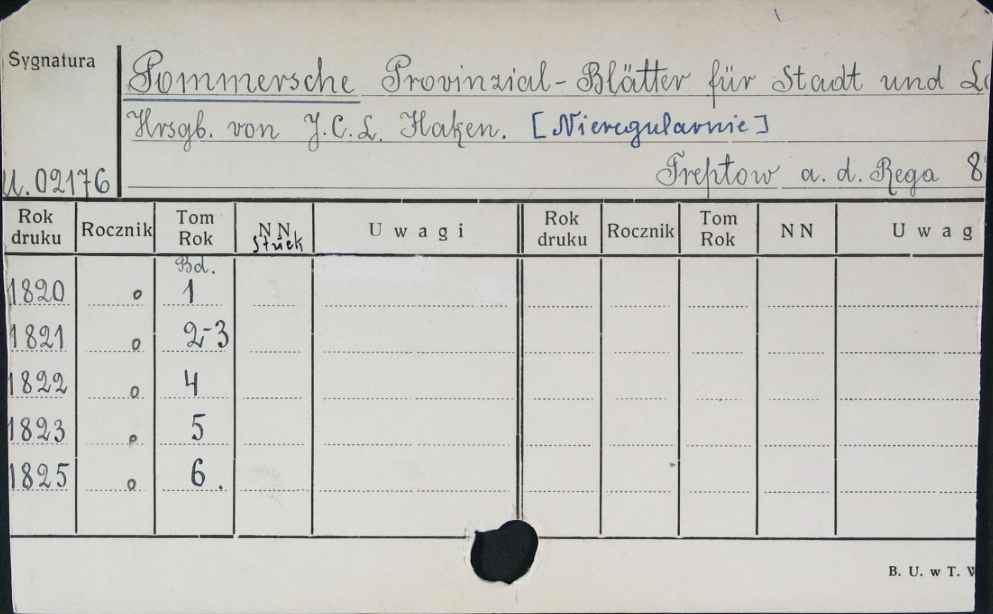 Sygnatura
Pommersche Provinzial-Blätter für Stadt und
Hrsgb. von J.C.L. Haken. [Nieregularnie]
U.02176 Treptow a. d. Rega 8
Rok druku Rocznik Tom Rok NN Uwagi Rok druku Rocznik Tom Rok NN Uwag
Bd.
1820 o 1
1821 o 2-3
1822 o 4
1823 o 5
1825 o 6.
B. U. w T.